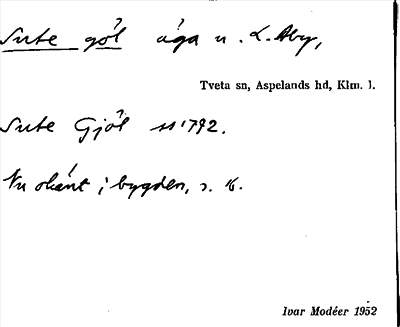 Sute göl äga u. L. Aby,
Tveta sn, Aspelands hd, Klm. l.
Sute Gjöl 1792.
Nu okänt i bygden, s. 16.
Ivar Modéer 1952